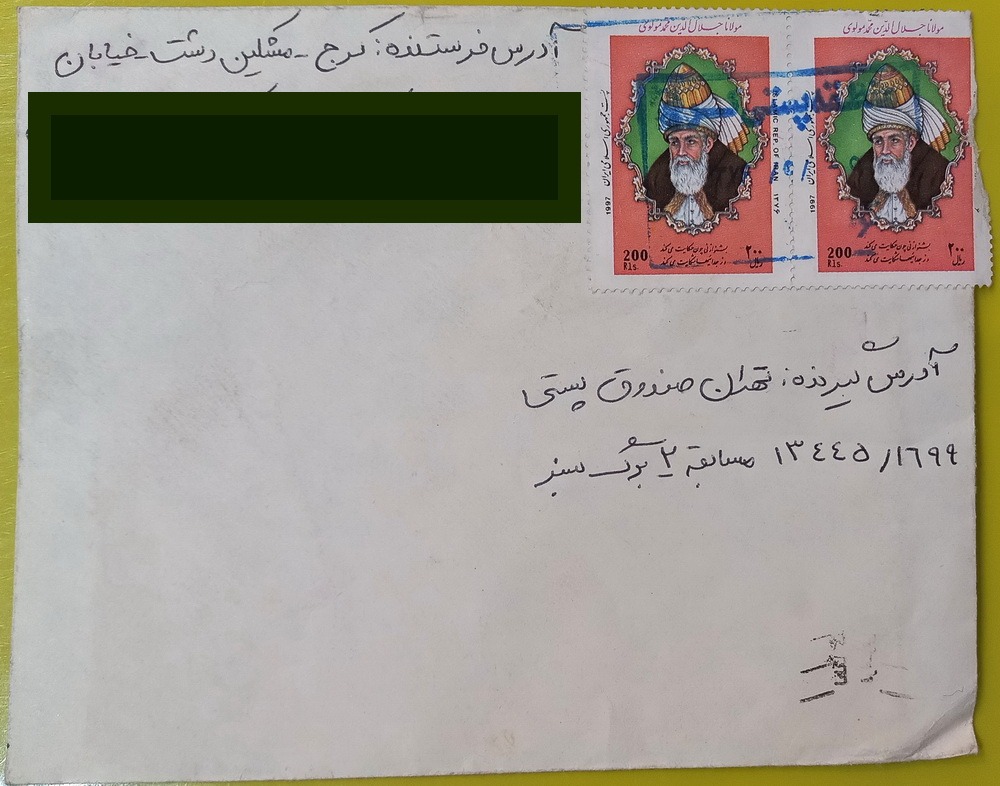 آدرس فرستنده: کرج - مشکین دشت - خیابان
مولانا جلال‌الدین محمد مولوی
پست جمهوری اسلامی ایران
1997
ISLAMIC REP. OF IRAN ۱۳۷۶
بشنو از نی چون حکایت می‌کند
وز جدائیها شکایت می‌کند
200 Rls.
۲۰۰ ریال
مولانا جلال‌الدین محمد مولوی
پست جمهوری اسلامی ایران
1997
بشنو از نی چون حکایت می‌کند
وز جدائیها شکایت می‌کند
200 Rls.
۲۰۰ ریال
پستی
آدرس گیرنده: تهران صندوق پستی
۱۳۴۴۵/۱۶۹۹ مسابقه ۲ برگ سبز